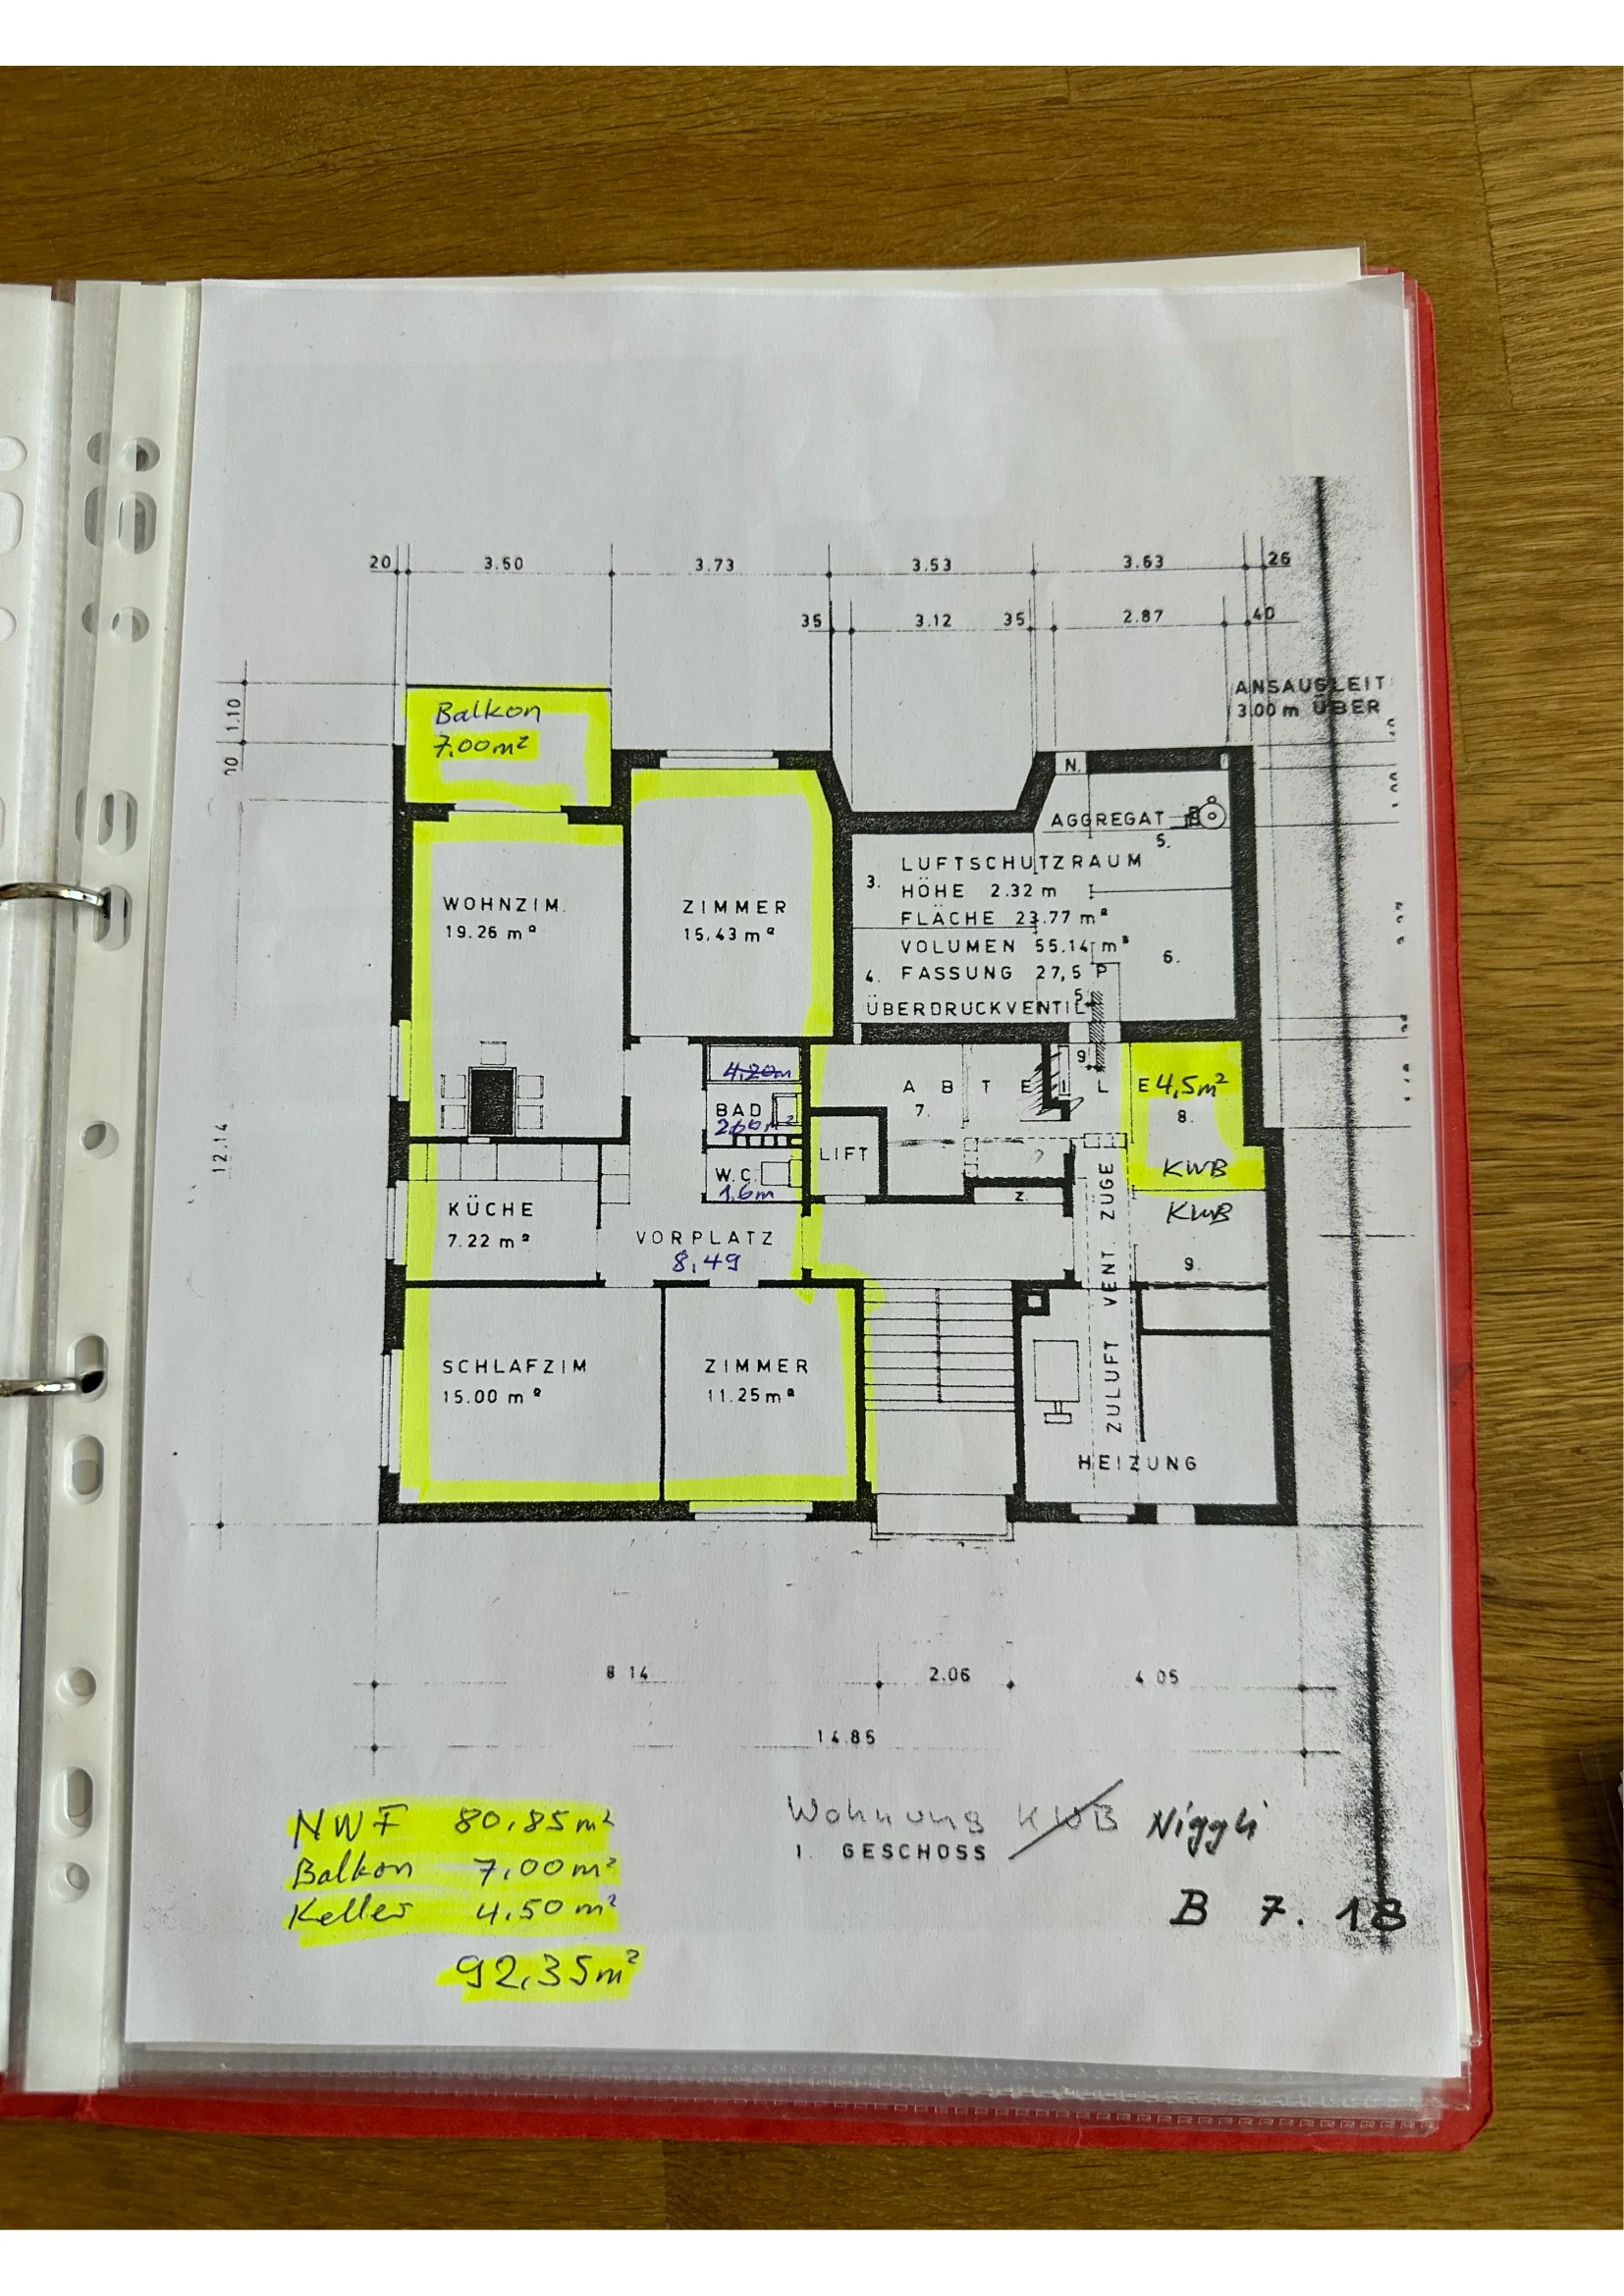 20 3.50 3.73 3.53 3.63 26
35 3.12 35 2.87 40
1.10
ANSAUGLEIT
3.00 m ÜBER
Balkon
7,00 m²
N.
AGGREGAT
5.
LUFTSCHUTZRAUM
3.
HÖHE 2.32 m
FLÄCHE 23.77 m²
VOLUMEN 55.14 m³
4. FASSUNG 27,5 P
6.
5.
ÜBERDRUCKVENTIL
WOHNZIM.
19.26 m²
ZIMMER
15.43 m²
4,20m
BAD
W.C.
1,6m
9
ABTEILE
7.
4,5 m²
8.
KWB
LIFT
Z.
KWB
9.
12.14
KÜCHE
7.22 m²
VORPLATZ
8,49
ZULUFT VENT. ZÜGE
SCHLAFZIM
15.00 m²
ZIMMER
11.25 m²
HEIZUNG
8 14 2.06 4 05
14.85
NWF 80,85 m²
Balkon 7,00 m²
Keller 4,50 m²
92,35 m²
Wohnung KWB Niggli
1. GESCHOSS
B 7.18